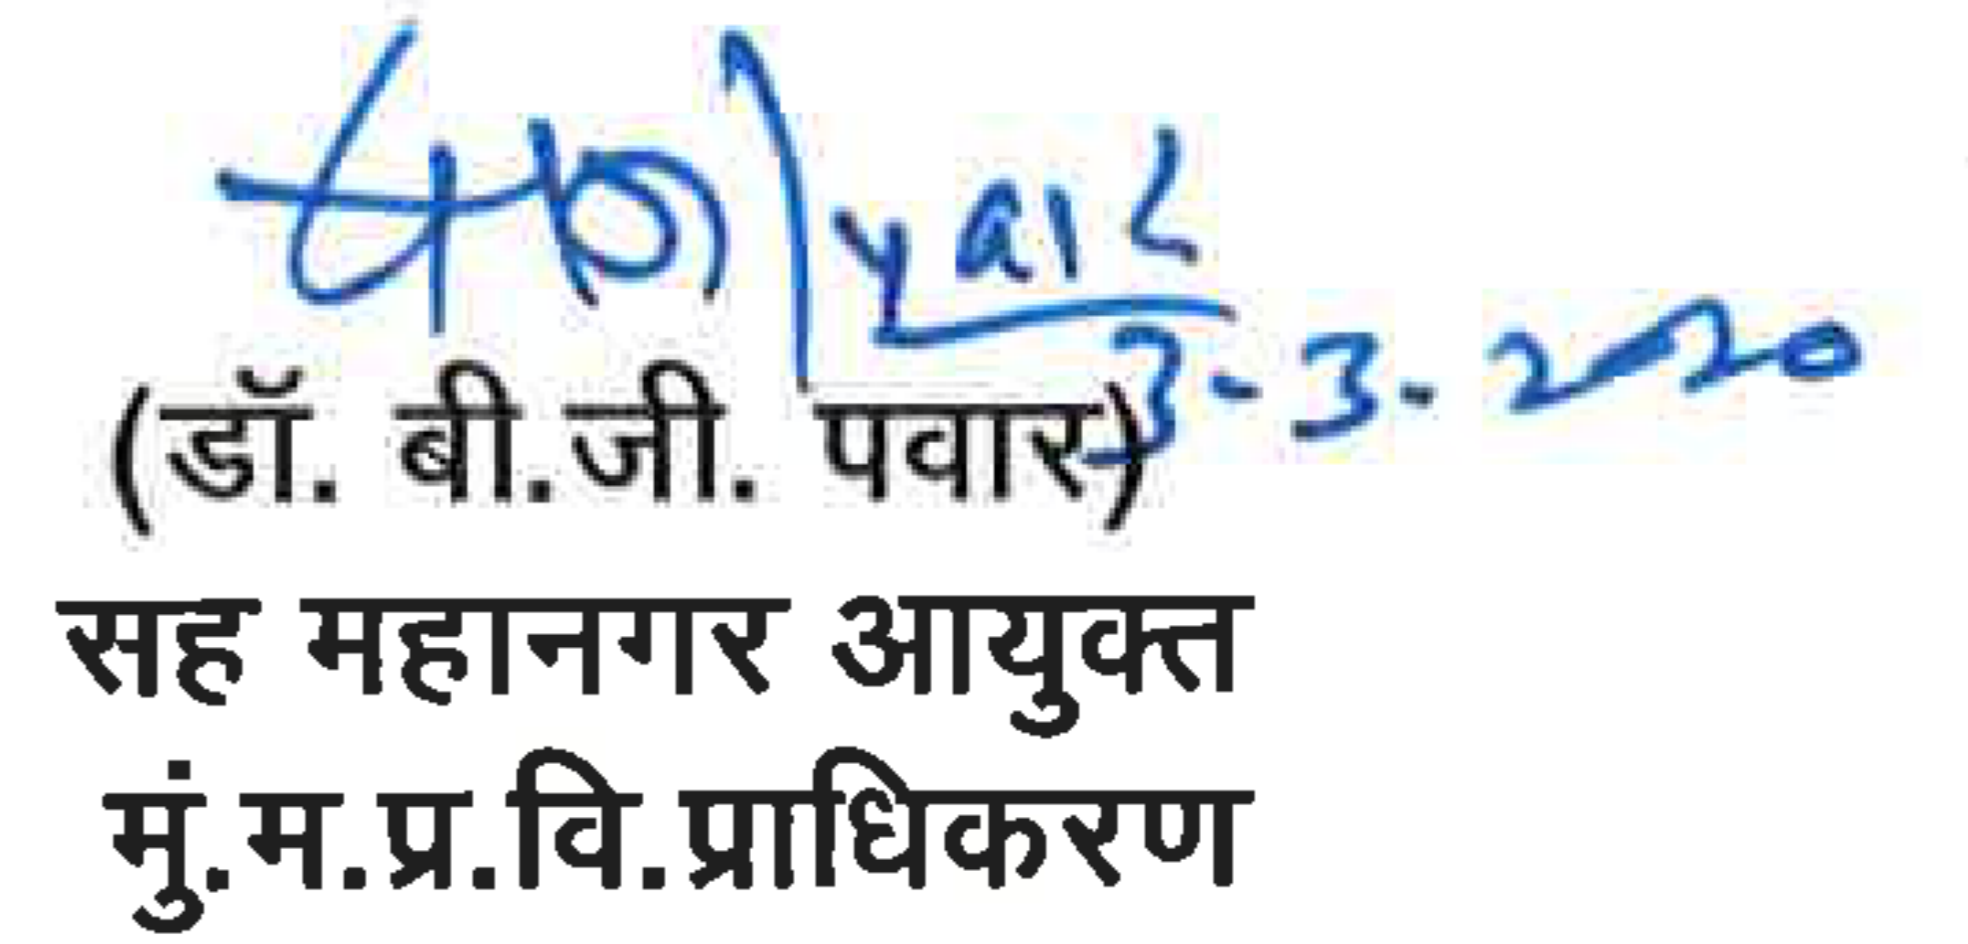 पवार
3-3-2020
(डॉ. बी.जी. पवार)
सह महानगर आयुक्त
मुं.म.प्र.वि.प्राधिकरण